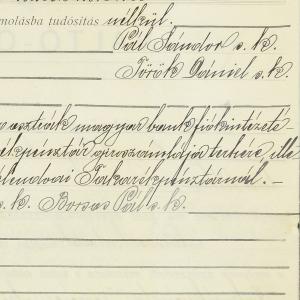 molásba tudósítás nélkül.
Pál Sándor s.k.
Török Dániel s.k.
osztrák magyar bank fiókintézeté-
kpénztár girószámlája terhére, ille
lendvai Takarékpénztárnál. -
s.k. Borsos Pál s.k.